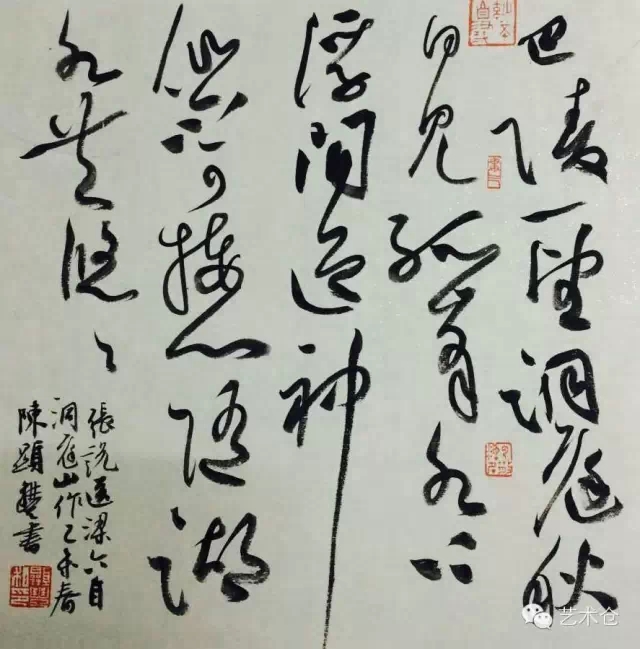 巴陵一望洞庭秋
日見孤峯水上
浮聞道神
仙不可接心隨湖
水共悠〻
張説送梁六自
洞庭山作乙未春
陳顯書
艺术仓